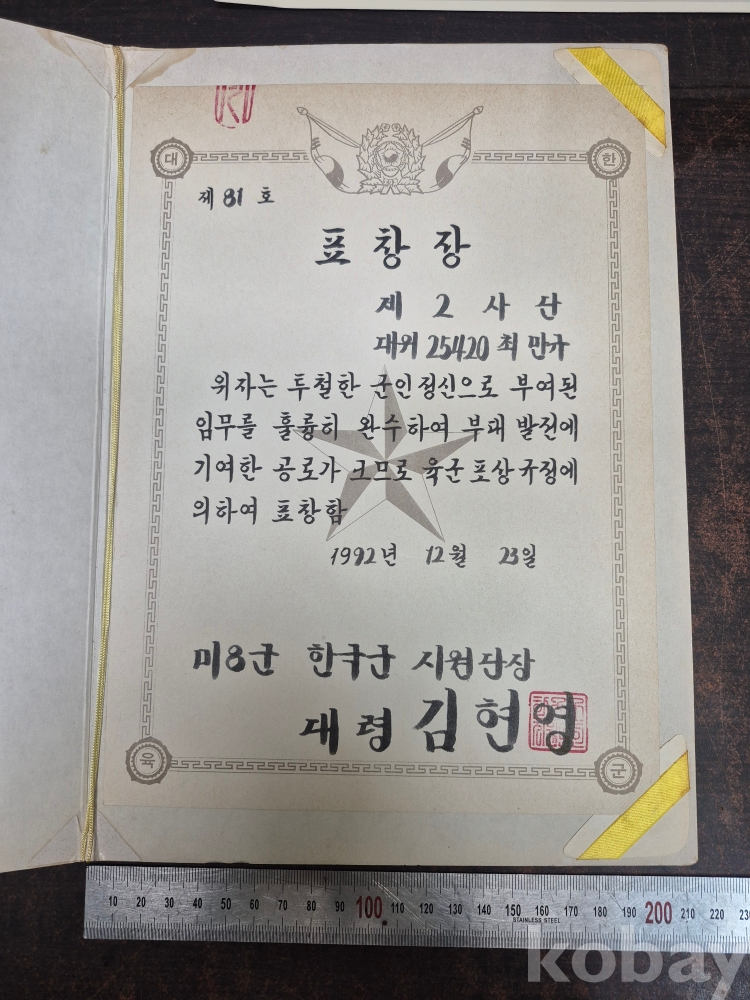 대 한
제 81 호
표 창 장
제 2 사 단
대위 25420 최 만규
위자는 투철한 군인정신으로 부여된
임무를 훌륭히 완수하여 부대 발전에
기여한 공로가 크므로 육군 포상 규정에
의하여 표창함
1992년 12월 23일
미8군 한국군 지원단장
대령 김현영
육 군
10 20 30 40 50 60 70 80 90 100 110 120 130 140 150 160 170 180 190 200 210 220
STAINLESS STEEL
kobay